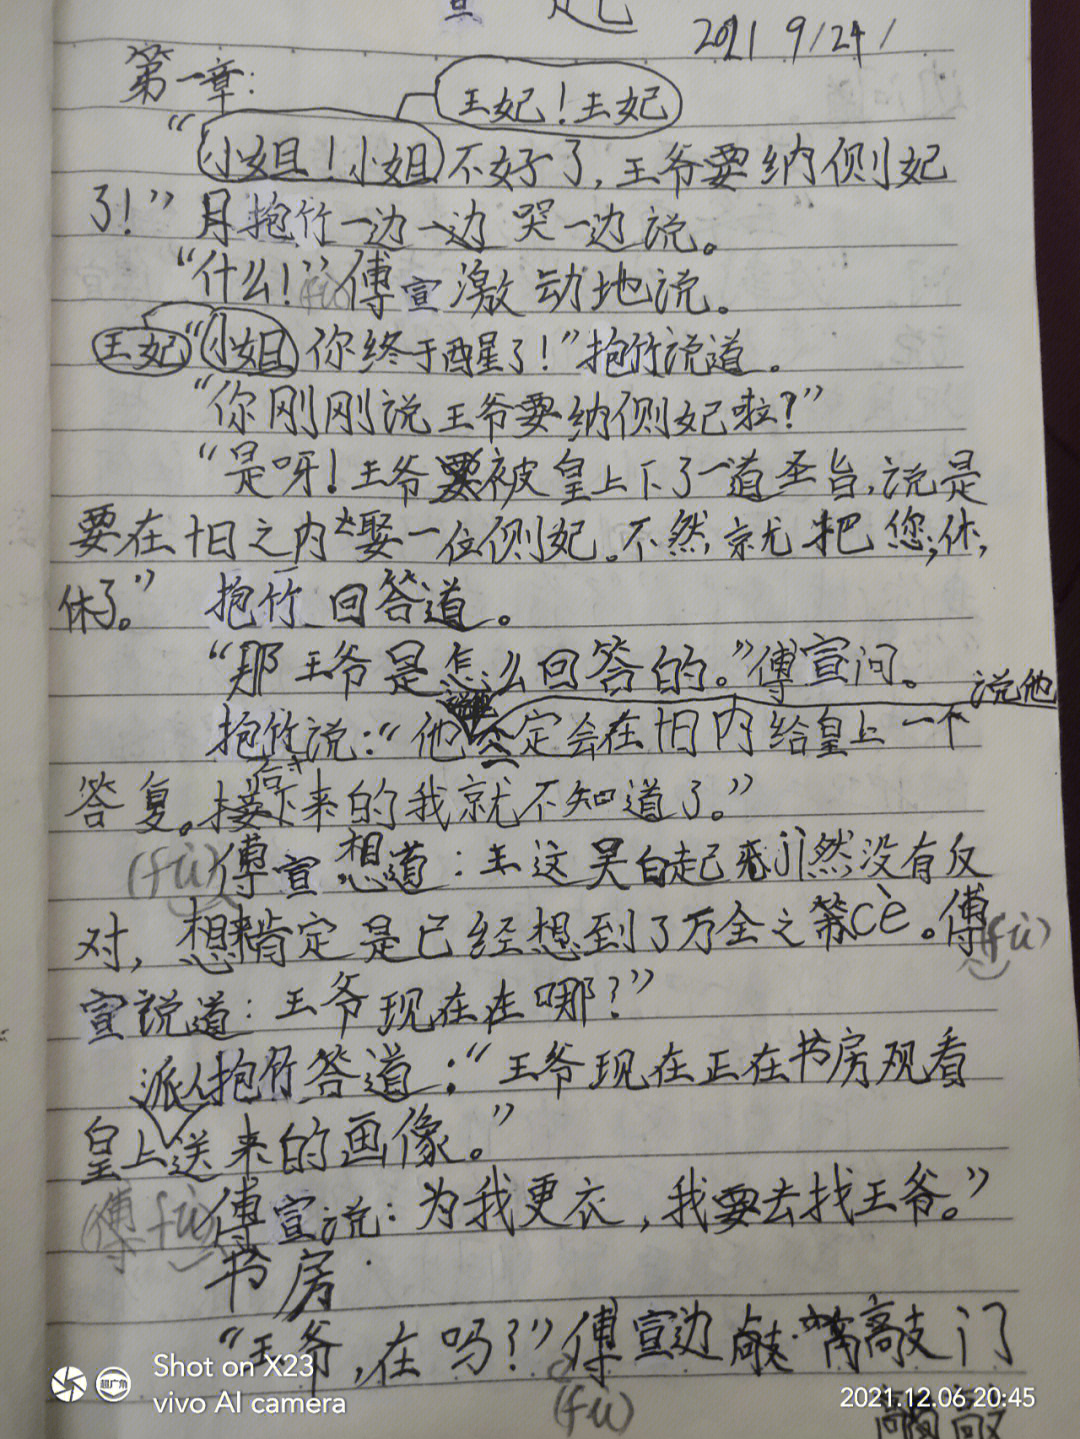 宣 起
2021 9/24/
第一章:
王妃!王妃
“小姐!小姐不好了,王爷要纳侧妃
了!”月抱竹一边一边哭一边说。
“什么!”(fù)傅宣激动地说。
王妃“小姐你终于醒了!”抱竹说道。
“你刚刚说王爷要纳侧妃啦?”
“是呀!王爷要被皇上下了一道圣旨,说是
要在十日之内娶一位侧妃。不然就把您,休,
休了。” 抱竹回答道。
“那王爷是怎么回答的。”傅宣问。
说他
抱竹说:“他一定会在十日内给皇上一个
答复。接下来的我就不知道了。”
(fù)傅宣想道:这吴白起jì然没有反
对,想肯定是已经想到了万全之策cè。傅(fù)
宣说道:王爷现在在哪?”
派人抱竹答道:“王爷现在正在书房观看
皇上送来的画像。”
(傅fù)傅宣说:为我更衣,我要去找王爷。”
书房
“王爷,在吗?”傅宣边敲敲门
(fù)
Shot on X23
vivo AI camera
超广角
2021.12.06 20:45